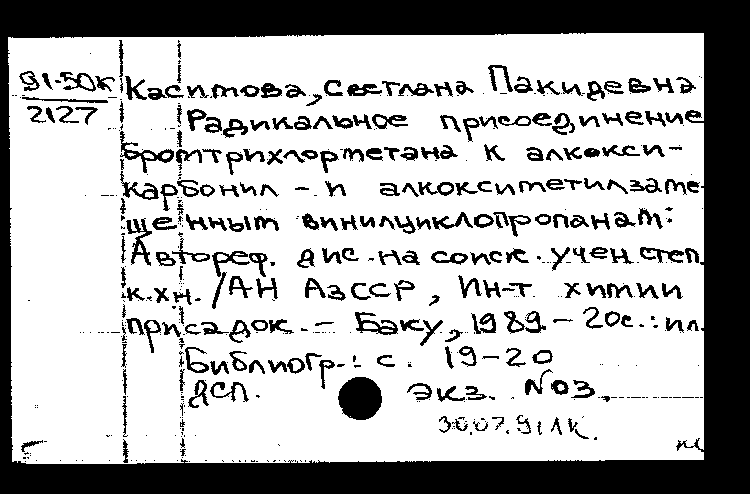 91-50к
2127
Касимова, Светлана Пакидевна
Радикальное присоединение
бромтрихлорметана к алкокси-
карбонил - и алкоксиметилзаме-
щенным винилциклопропанам:
Автореф. дис. на соиск. учен. степ.
к.хн. / АН АзССР, Ин-т химии
присадок. - Баку, 1989. - 20с.: ил.
Библиогр.: с. 19-20
ДСП. экз. №03.
30.07.91 ЛК.